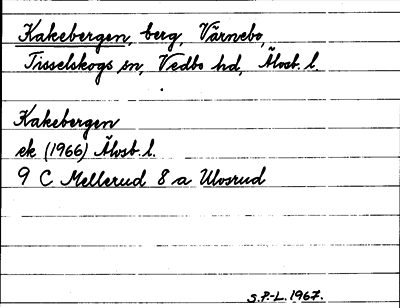 Kakebergen, berg, Värnebo,
Tisselskogs sn, Vedbo hd, Älvsb. l.
Kakebergen
ek (1966) Älvsb l.
9 C Mellerud 8 a Ulvsrud
S.P.-L. 1967.